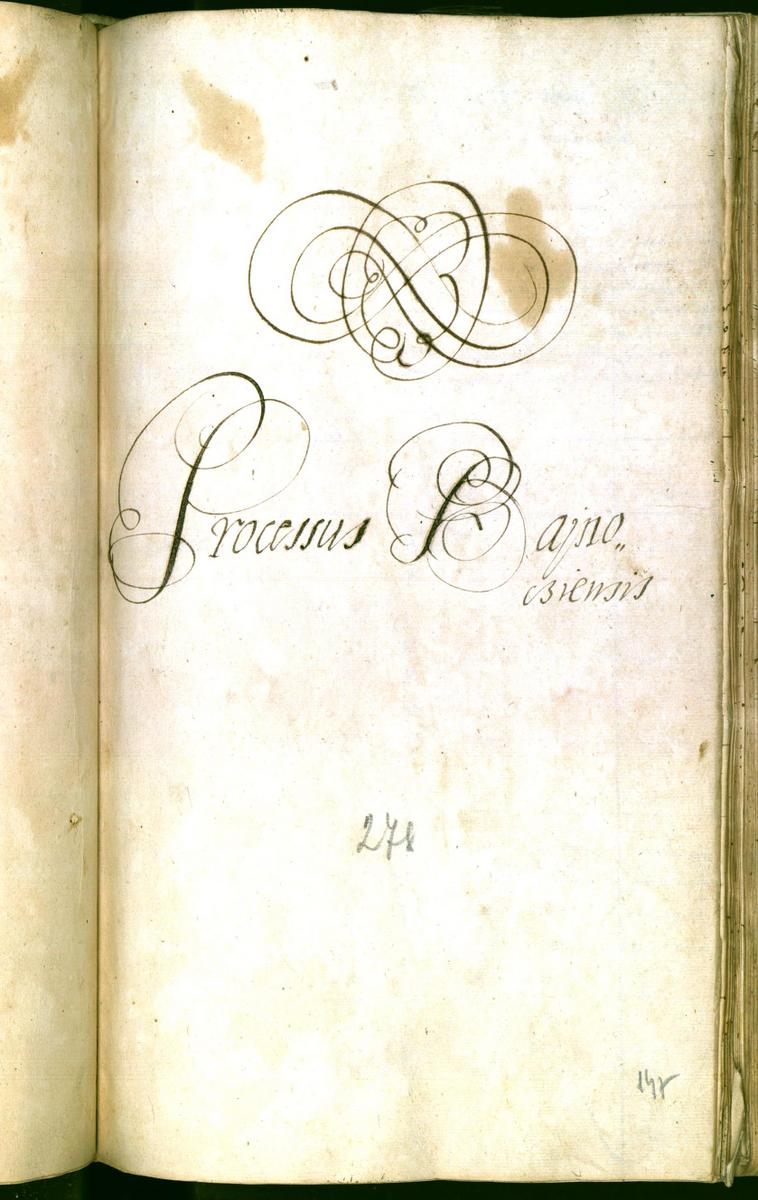 Processus Bajno„
cziensis
278
148